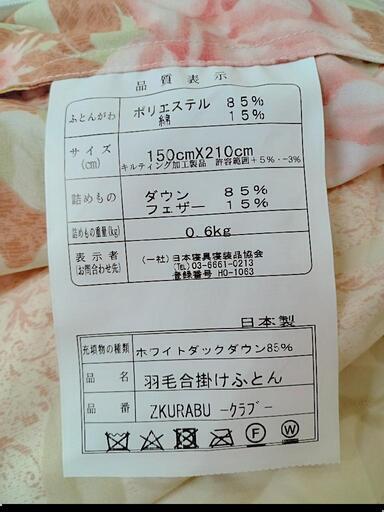 品質表示
ふとんがわ ポリエステル 85%
綿 15%
サイズ(cm) 150cmX210cm
キルティング加工製品 許容範囲+5%・-3%
詰めもの ダウン 85%
フェザー 15%
詰めもの重量(kg) 0.6kg
表示者(お問合わせ先) (一社)日本寝具寝装品協会
(TEL) 03-6661-0213
登録番号 H0-1063
日本製
充填物の種類 ホワイトダックダウン85%
品名 羽毛合掛けふとん
品番 ZKURABU -クラブ-
F W